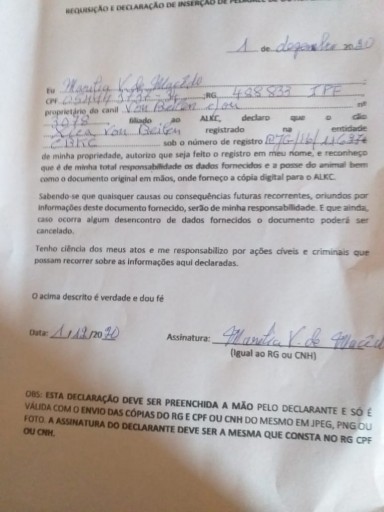 REQUISIÇÃO E DECLARAÇÃO DE INSERÇÃO DE
1 de dezembro 2020
Eu Marilia V. de Macêdo
CPF RG 488833
proprietário do canil Von Beiten nº
2078 filiado ao ALKC, declaro que o cão
Von Beiten registrado na entidade
CBKC sob o número de registro
de minha propriedade, autorizo que seja feito o registro em meu nome, e reconheço
que é de minha total responsabilidade os dados fornecidos e a posse do animal bem
como o documento original em mãos, onde forneço a cópia digital para o ALKC.
Sabendo-se que quaisquer causas ou consequências futuras recorrentes, oriundos por
informações deste documento fornecido, serão de minha responsabilidade. E que ainda,
caso ocorra algum desencontro de dados fornecidos o documento poderá ser
cancelado.
Tenho ciência dos meus atos e me responsabilizo por ações cíveis e criminais que
possam recorrer sobre as informações aqui declaradas.
O acima descrito é verdade e dou fé
Data: 1/12/2020 Assinatura: Marilia V. de Macêd
(Igual ao RG ou CNH)
OBS: ESTA DECLARAÇÃO DEVE SER PREENCHIDA A MÃO PELO DECLARANTE E SÓ É
VÁLIDA COM O ENVIO DAS CÓPIAS DO RG E CPF OU CNH DO MESMO EM JPEG, PNG OU
FOTO. A ASSINATURA DO DECLARANTE DEVE SER A MESMA QUE CONSTA NO RG CPF
OU CNH.